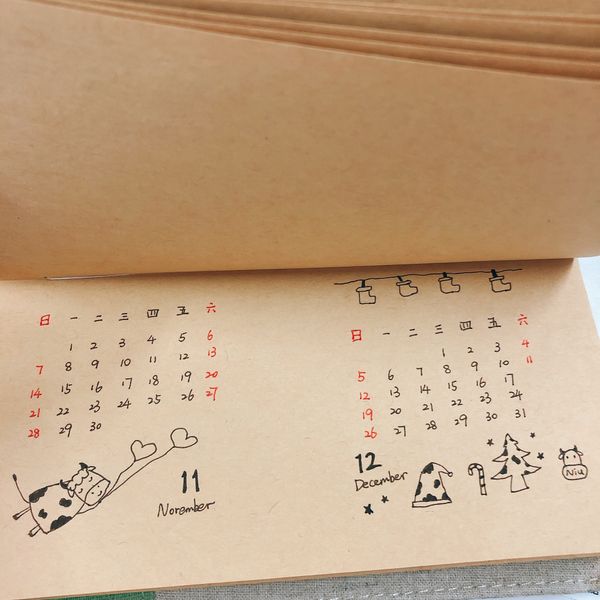 日 一 二 三 四 五 六
1 2 3 4 5 6
7 8 9 10 11 12 13
14 15 16 17 18 19 20
21 22 23 24 25 26 27
28 29 30
11
Norember
日 一 二 三 四 五 六
1 2 3 4
5 6 7 8 9 10 11
12 13 14 15 16 17
19 20 21 22 23 24
26 27 28 29 30 31
12
December
Niu